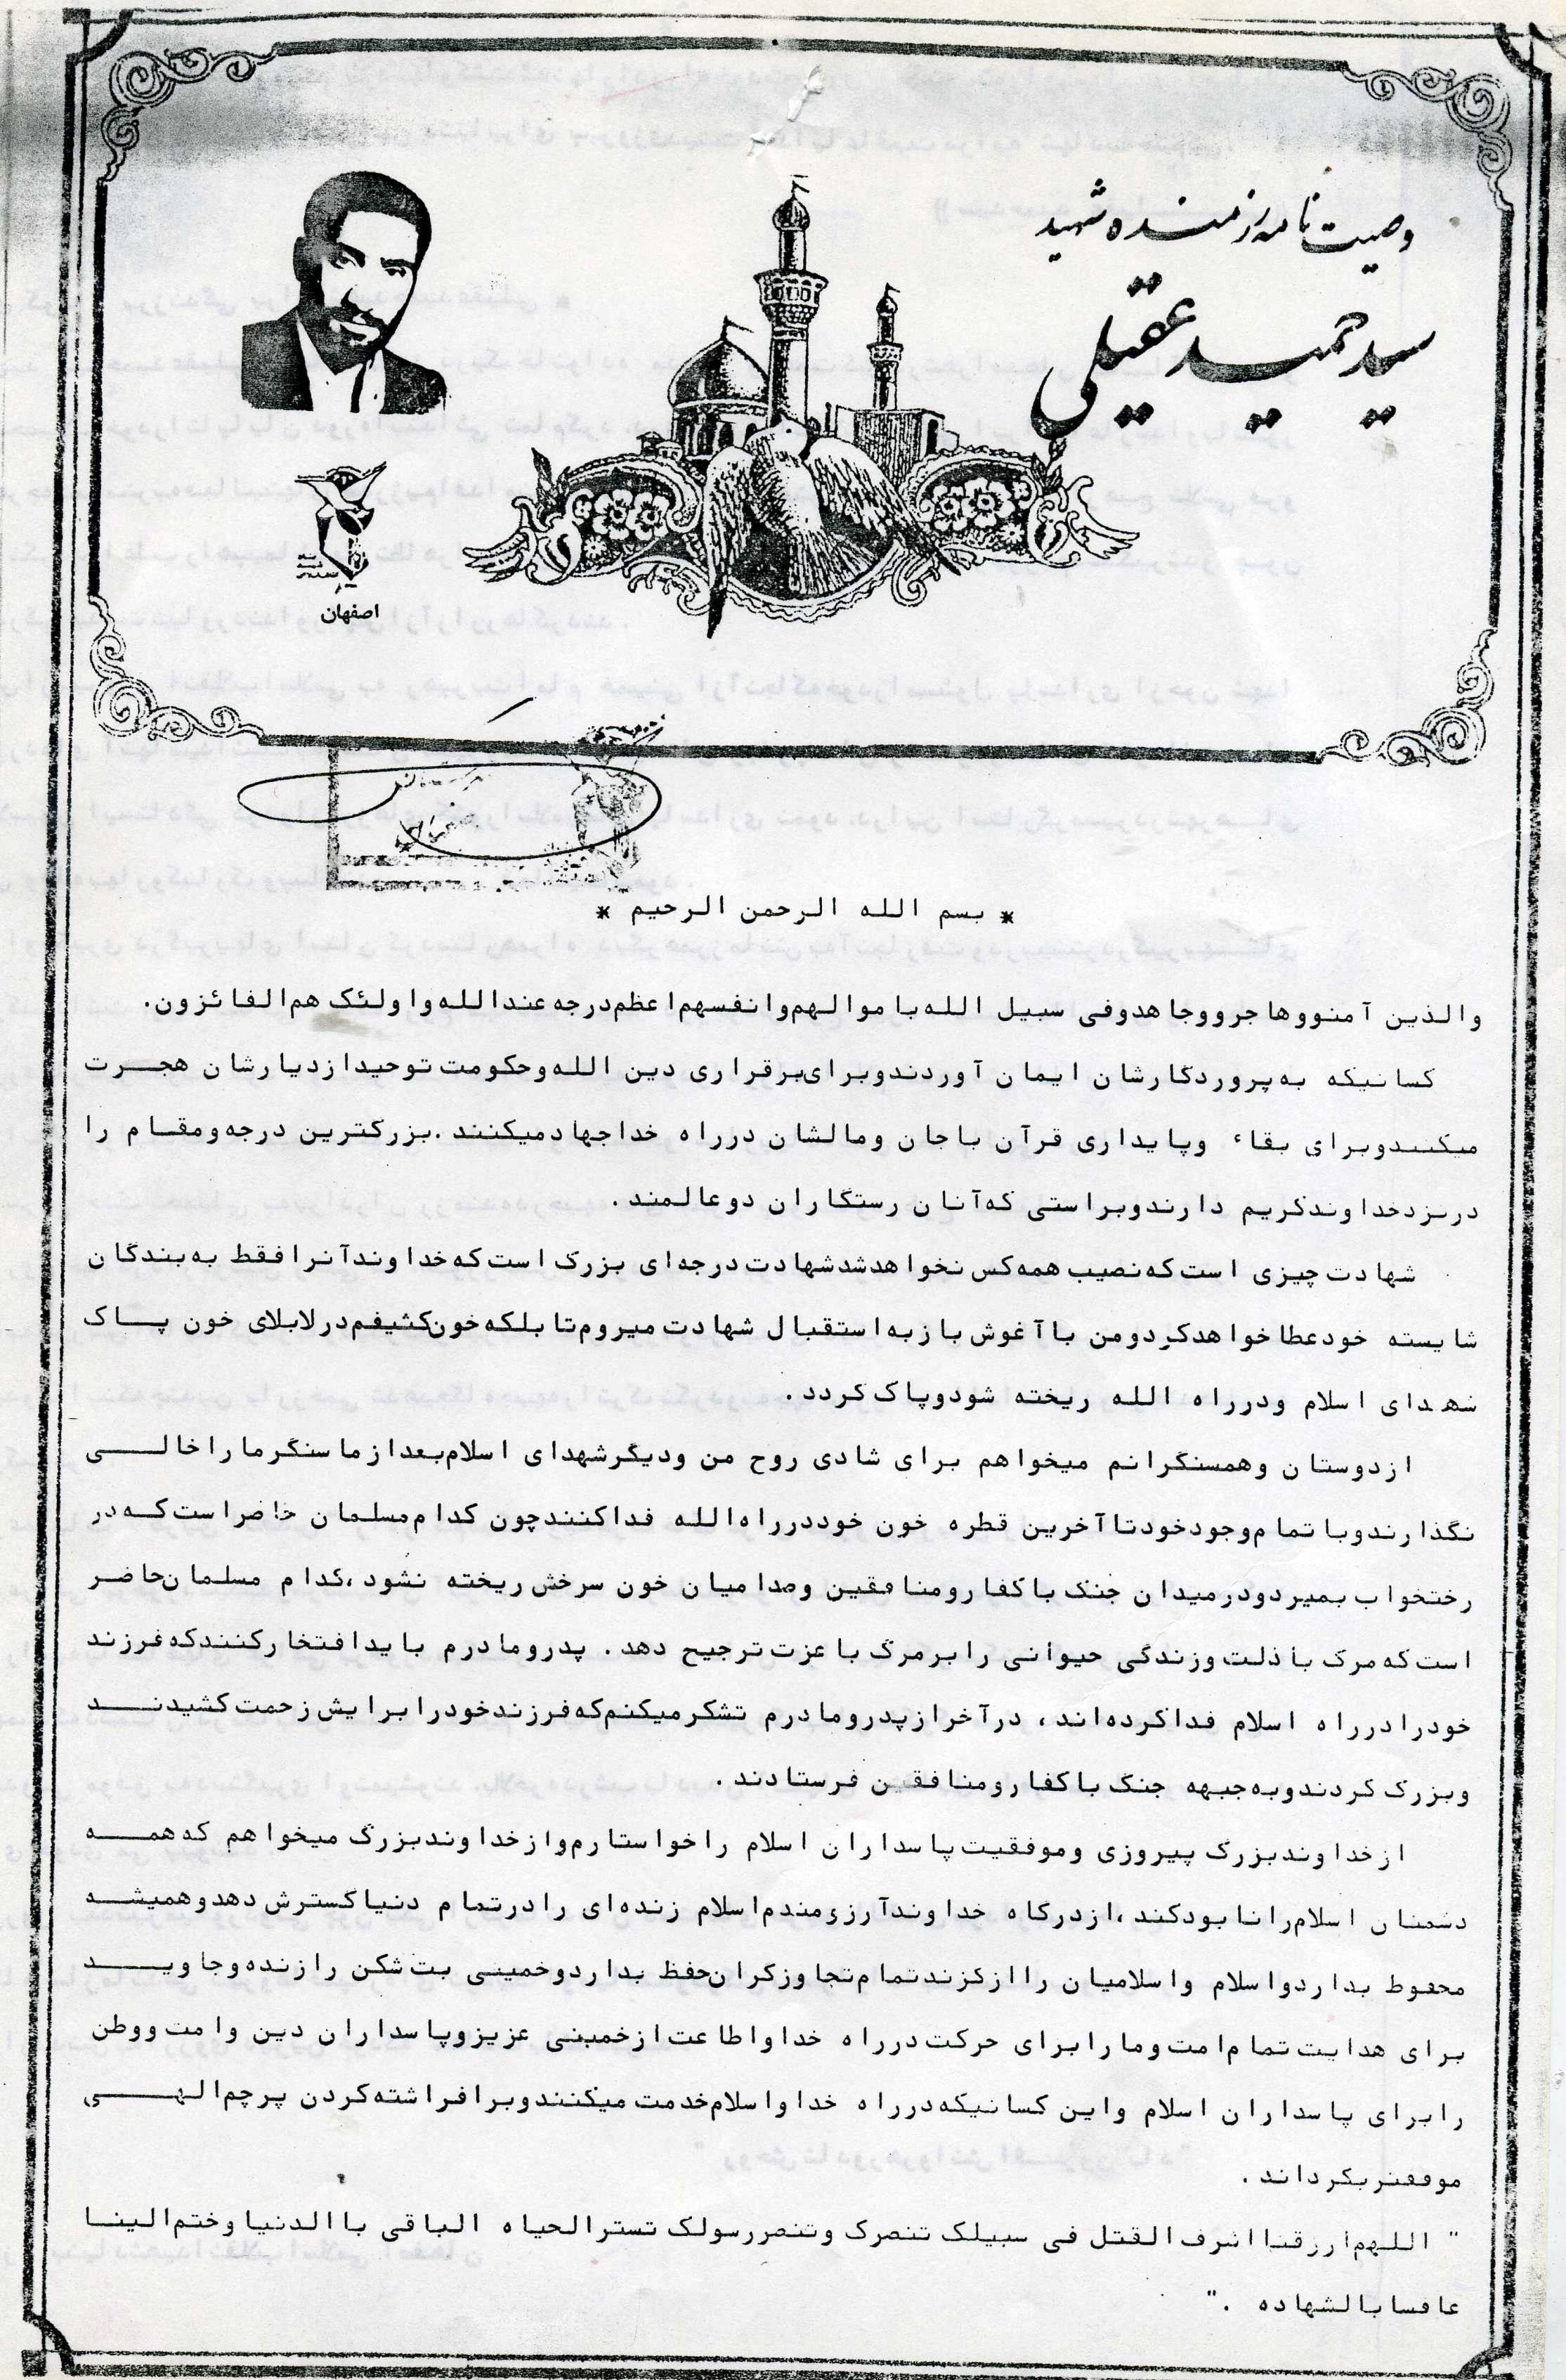 وصیت نامه رزمنده شهید
سید حمید عقیلی
اصفهان
* بسم الله الرحمن الرحیم *
والذین آمنوو هاجرووجاهدوفی سبیل الله باموالهم وانفسهم اعظم درجه عندالله واولئک هم الفائزون.
کسانیکه به پروردگارشان ایمان آوردندوبرای برقراری دین الله وحکومت توحیدازدیارشان هجرت
میکنندوبرای بقاء وپایداری قرآن باجان ومالشان درراه خداجهادمیکنند .بزرگترین درجه ومقام را
درنزدخداوندکریم دارندوبراستی که آنان رستگاران دوعالمند .
شهادت چیزی است که نصیب همه کس نخواهدشدشهادت درجه ای بزرگ است که خداوندآنرافقط به بندگان
شایسته خودعطاخواهدکردومن باآغوش بازبه استقبال شهادت میروم تابلکه خون کثیفم درلابلای خون پاک
شهدای اسلام ودرراه الله ریخته شودوپاک گردد .
ازدوستان وهمسنگرانم میخواهم برای شادی روح من ودیگرشهدای اسلام بعدازماسنگرماراخالی
نگذارندوباتمام وجودخودتاآخرین قطره خون خوددرراه الله فداکنندچون کدام مسلمان حاضراست که در
رختخواب بمیردودرمیدان جنگ باکفارومنافقین وصدامیان خون سرخش ریخته نشود ،کدام مسلمان حاضر
است که مرگ باذلت وزندگی حیوانی رابرمرگ باعزت ترجیح دهد . پدرومادرم بایدافتخارکنندکه فرزند
خودرادرراه اسلام فداکرده اند ، درآخرازپدرومادرم تشکرمیکنم که فرزندخودرابرایش زحمت کشیدند
وبزرگ کردندوبه جبهه جنگ باکفارومنافقین فرستادند .
ازخداوندبزرگ پیروزی وموفقیت پاسداران اسلام راخواستارم وازخداوندبزرگ میخواهم که همه
دشمنان اسلام رانابودکند ،ازدرگاه خداوندآرزومندم اسلام زنده ای رادرتمام دنیاگسترش دهدوهمیشه
محفوظ بداردواسلام واسلامیان راازگزندتمام تجاوزگران حفظ بداردوخمینی بت شکن رازنده وجاوید
برای هدایت تمام امت ومارابرای حرکت درراه خداواطاعت ازخمینی عزیزوپاسداران دین وامت ووطن
رابرای پاسداران اسلام واین کسانیکه درراه خداواسلام خدمت میکنندوبرافراشته کردن پرچم الهی
موفقتربگرداند .
" اللهم ارزقنااشرف القتل فی سبیلک تنصرک وتنصررسولک تسترالحیاه الباقی باالدنیاوختم الینا
بالشهاده ."